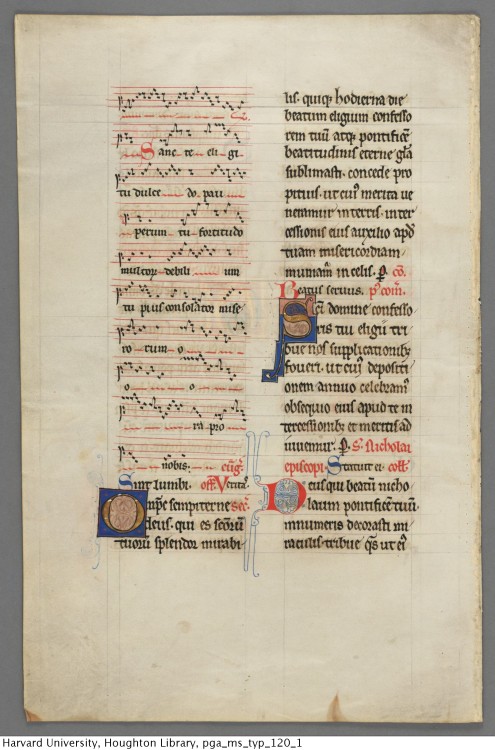 Sancte eligi
tu dulce do pau
perum tu fortitudo
miseror debili um
tu pius consolator mise
ro rum o
o o
ra pro
nobis. eug̅.
Sint lumbi. off̅. Veritas.
Om̅pe sempiterne sec̅.
deus. qui es sc̅oru̅
tuoru̅ splendor mirabi
lis. quiq; hodierna die
beatum eligium confesso
rem tuu̅ atq; pontifice̅
beatitudinis eterne gl̅a
sublimasti. concede pro
pitius. ut cui' merita ue
neramur in terris. inter
cessionis eius auxilio apd̅
tuam misericordiam
muniam̅ in celis. p̱. co̅.
Beatus seruus. p' com̅.
domine confesso
ris tui eligii tri
foueri. ut cui' depositi
onem annuo celebram'
obsequio eius apud te in
tercessionib; et meritis ad
iuuemur. p̱. S. Nicholai
episcopi. Statuit ei. coll̅.
Deus qui beatu̅ nicho
laum pontifice̅ tuu̅
innumeris decorasti mi
raculis. tribue q̅s ut ei'
Harvard University, Houghton Library, pga_ms_typ_120_1